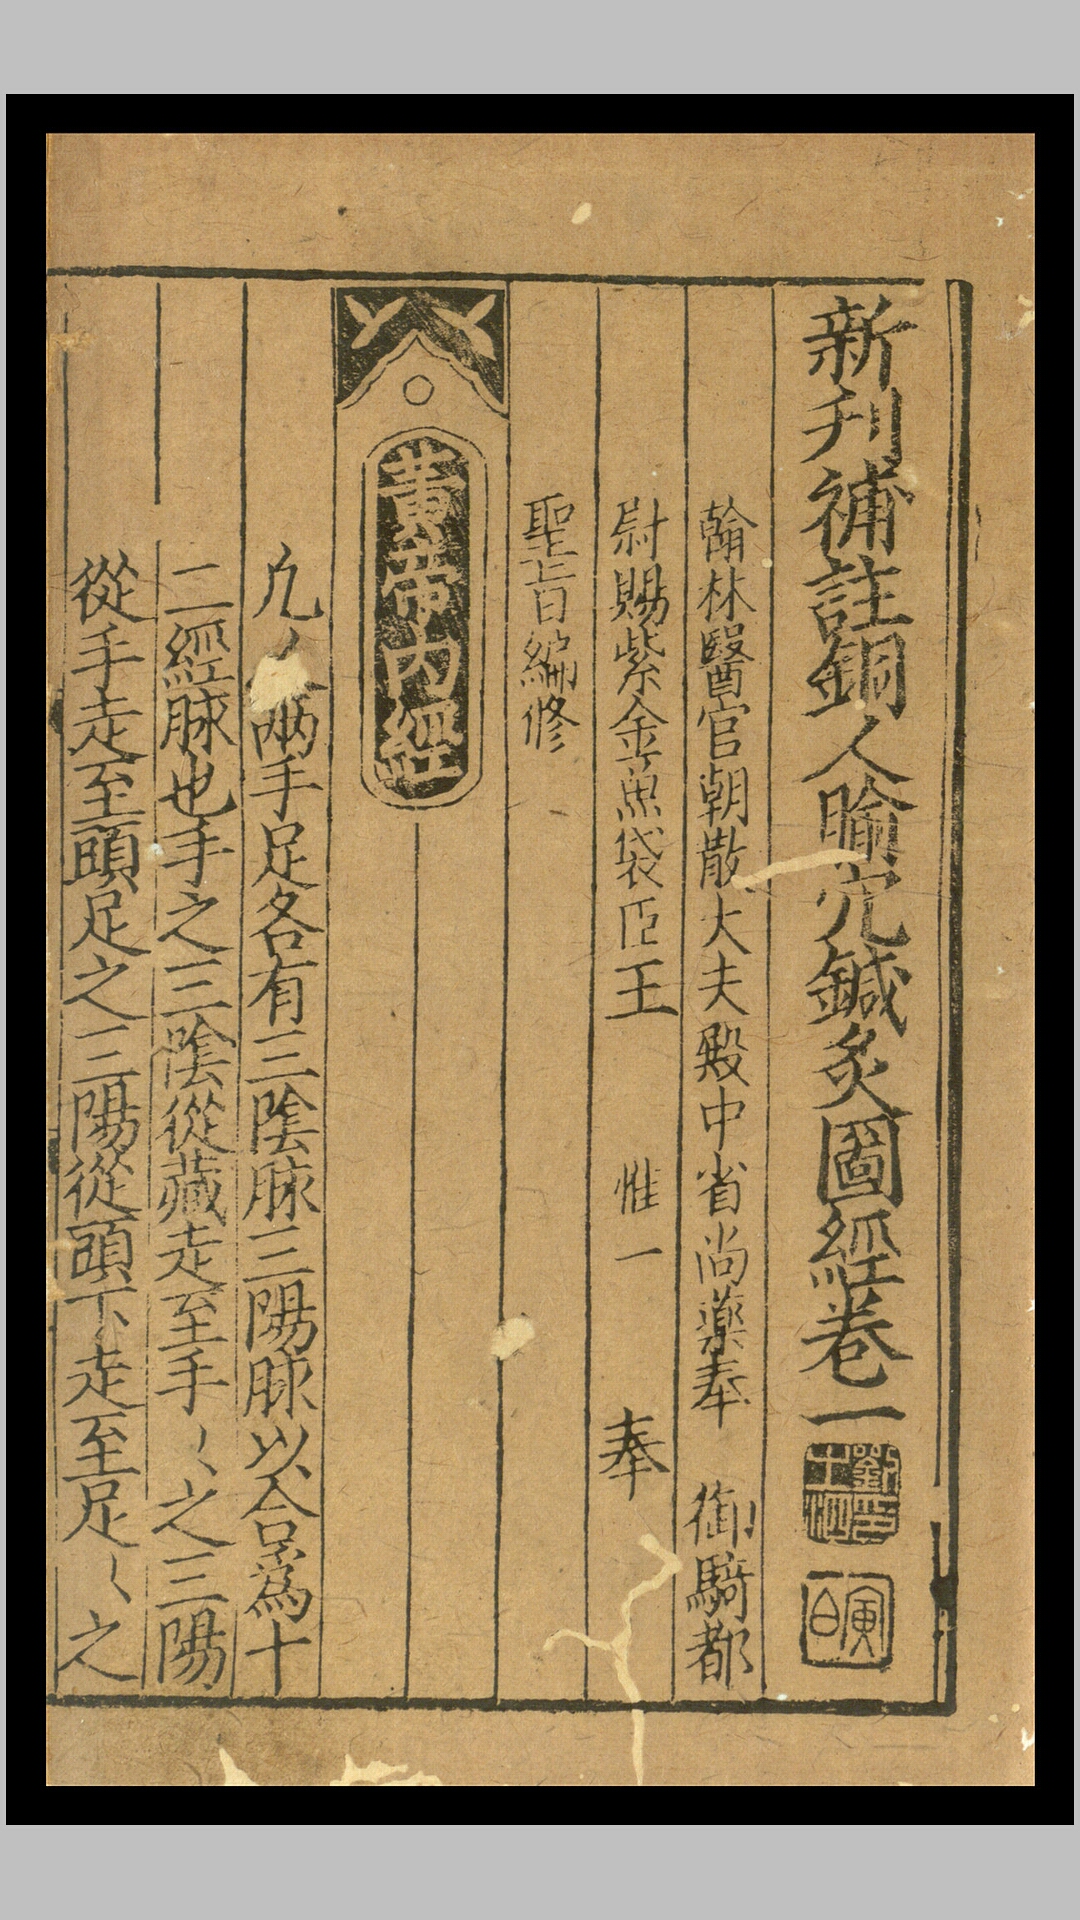 新刋補註銅人腧穴鍼炙啚經卷一
翰林醫官朝散大夫殿中省尚藥奉 御騎都
尉賜紫金魚袋臣王 惟一 奉
聖旨編修
黄帝内經
凢人兩手足各有三陰脉三陽脉以合爲十
二經脉也手之三陰從藏走至手〻之三陽
從手走至頭足之三陽從頭下走至足〻之